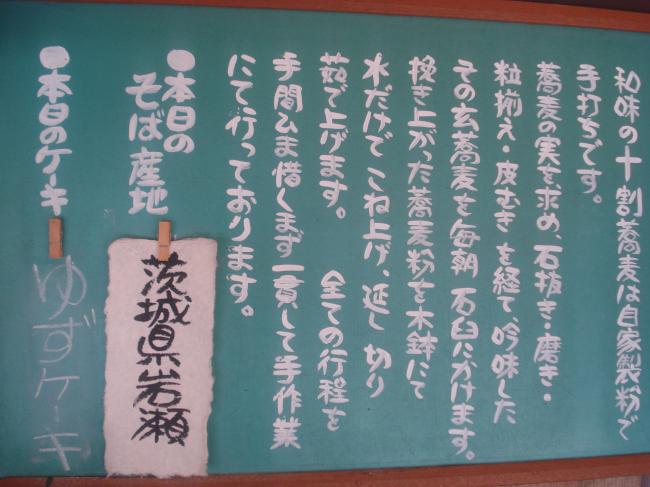 和味の十割蕎麦は自家製粉で
手打ちです。
蕎麦の実を求め、石抜き・磨き・
粒揃え・皮むきを経て、吟味した
その玄蕎麦を毎朝石臼にかけます。
挽き上がった蕎麦粉を木鉢にて
水だけでこね上げ、延し切り
茹で上げます。 全ての行程を
手間ひま惜しまず一貫して手作業
にて行っております。
●本日の
そば産地
茨城県岩瀬
●本日のケーキ
ゆずケーキ